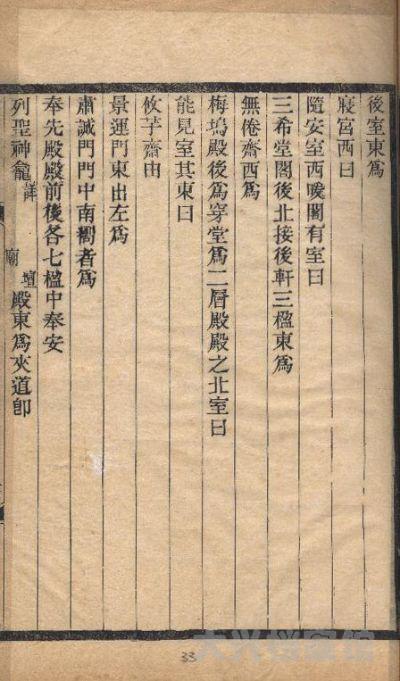 後室東爲
寢宮西曰
隨安室西暖閣有室曰
三希堂閣後北接後軒三楹東爲
無倦齋西爲
梅塢殿後爲穿堂爲二層殿殿之北室曰
能見室其東曰
攸芋齋由
景運門東出左爲
肅誠門門中南嚮者爲
奉先殿殿前後各七楹中奉安
列聖神龕詳壇廟殿東爲夾道卽
33